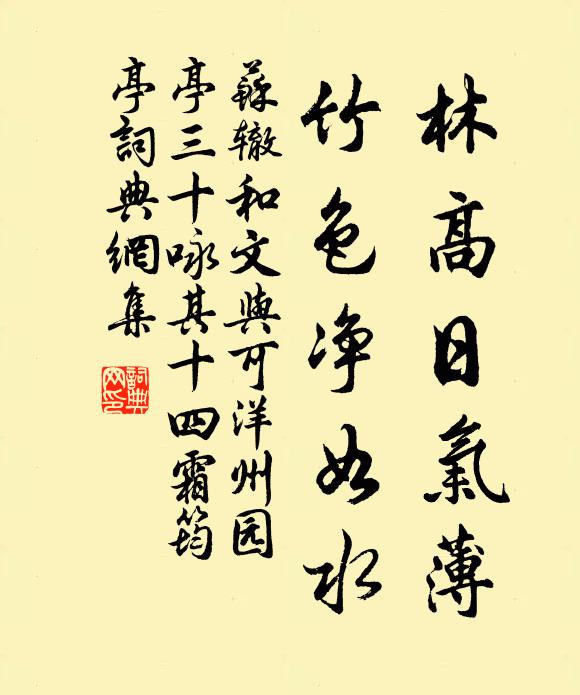 林高日氣薄
竹色净如水
蘇辙和文與可洋州园
亭三十咏其十四霜筠
亭詞典網集
詞典网印